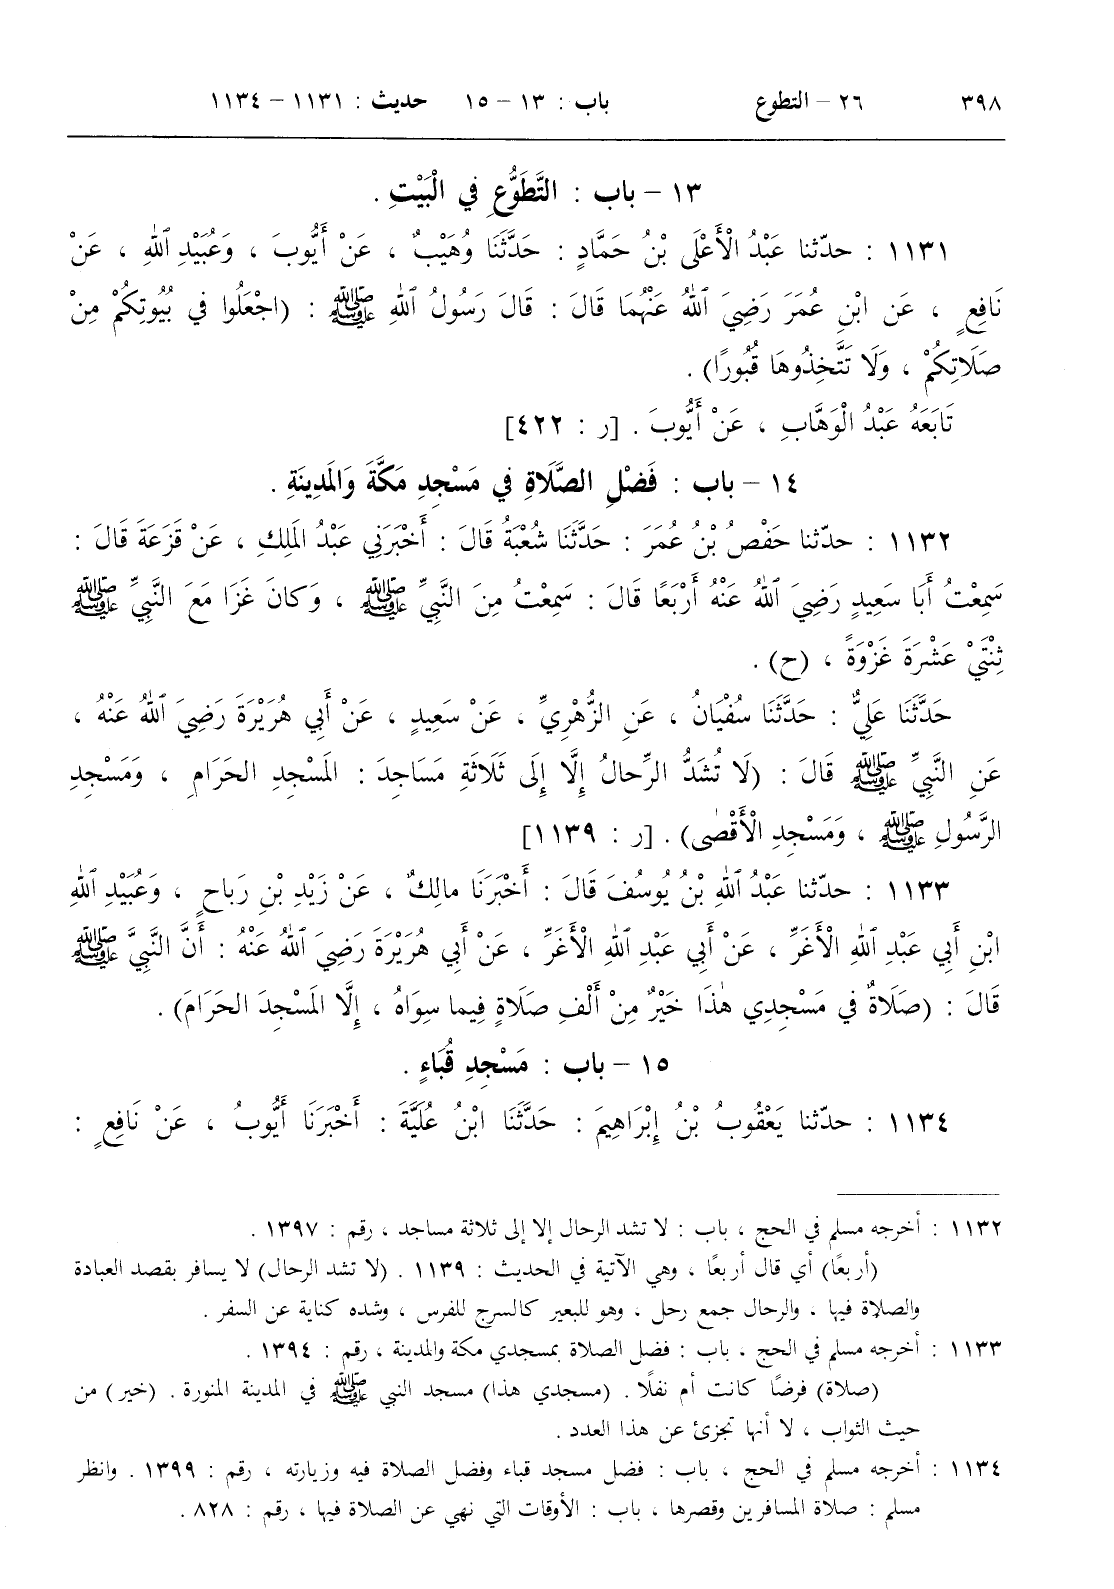 ٣٩٨ ٢٦ – التطوع باب : ١٣ – ١٥ حديث : ١١٣١ – ١١٣٤
١٣ – باب : التَّطَوُّعِ فِي الْبَيْتِ .
١١٣١ : حدّثنا عَبْدُ الْأَعْلَى بْنُ حَمَّادٍ : حَدَّثَنَا وُهَيْبٌ ، عَنْ أَيُّوبَ ، وَعُبَيْدِ ٱللهِ ، عَنْ
نَافِعٍ ، عَنِ ابْنِ عُمَرَ رَضِيَ ٱللهُ عَنْهُمَا قَالَ : قَالَ رَسُولُ ٱللهِ ﷺ : (اجْعَلُوا فِي بُيُوتِكُمْ مِنْ
صَلَاتِكُمْ ، وَلَا تَتَّخِذُوهَا قُبُورًا) .
تَابَعَهُ عَبْدُ الْوَهَّابِ ، عَنْ أَيُّوبَ . [ر : ٤٢٢]
١٤ – باب : فَضْلِ الصَّلَاةِ فِي مَسْجِدِ مَكَّةَ وَالمَدِينَةِ .
١١٣٢ : حدّثنا حَفْصُ بْنُ عُمَرَ : حَدَّثَنَا شُعْبَةُ قَالَ : أَخْبَرَنِي عَبْدُ المَلِكِ ، عَنْ قَزَعَةَ قَالَ :
سَمِعْتُ أَبَا سَعِيدٍ رَضِيَ ٱللهُ عَنْهُ أَرْبَعًا قَالَ : سَمِعْتُ مِنَ النَّبِيِّ ﷺ ، وَكانَ غَزَا مَعَ النَّبِيِّ ﷺ
ثِنْتَيْ عَشْرَةَ غَزْوَةً ، (ح) .
حَدَّثَنَا عَلِيٌّ : حَدَّثَنَا سُفْيَانُ ، عَنِ الزُّهْرِيِّ ، عَنْ سَعِيدٍ ، عَنْ أَبِي هُرَيْرَةَ رَضِيَ ٱللهُ عَنْهُ ،
عَنِ النَّبِيِّ ﷺ قَالَ : (لَا تُشَدُّ الرِّحالُ إِلَّا إِلَى ثَلَاثَةِ مَسَاجِدَ : المَسْجِدِ الحَرَامِ ، وَمَسْجِدِ
الرَّسُولِ ﷺ ، وَمَسْجِدِ الْأَقْصٰى) . [ر : ١١٣٩]
١١٣٣ : حدّثنا عَبْدُ ٱللهِ بْنُ يُوسُفَ قَالَ : أَخْبَرَنَا مالِكٌ ، عَنْ زَيْدِ بْنِ رَباحٍ ، وَعُبَيْدِ ٱللهِ
ابْنِ أَبِي عَبْدِ ٱللهِ الْأَغَرِّ ، عَنْ أَبِي عَبْدِ ٱللهِ الْأَغَرِّ ، عَنْ أَبِي هُرَيْرَةَ رَضِيَ ٱللهُ عَنْهُ : أَنَّ النَّبِيَّ ﷺ
قَالَ : (صَلَاةٌ فِي مَسْجِدِي هٰذَا خَيْرٌ مِنْ أَلْفِ صَلَاةٍ فِيما سِوَاهُ ، إِلَّا المَسْجِدَ الحَرَامَ) .
١٥ – باب : مَسْجِدِ قُبَاءٍ .
١١٣٤ : حدّثنا يَعْقُوبُ بْنُ إِبْرَاهِيمَ : حَدَّثَنَا ابْنُ عُلَيَّةَ : أَخْبَرَنَا أَيُّوبُ ، عَنْ نَافِعٍ :
١١٣٢ : أخرجه مسلم في الحج ، باب : لا تشد الرحال إلا إلى ثلاثة مساجد ، رقم : ١٣٩٧ .
(أربعًا) أي قال أربعًا ، وهي الآتية في الحديث : ١١٣٩ . (لا تشد الرحال) لا يسافر بقصد العبادة
والصلاة فيها ، والرحال جمع رحل ، وهو للبعير كالسرج للفرس ، وشده كناية عن السفر .
١١٣٣ : أخرجه مسلم في الحج ، باب : فضل الصلاة بمسجدي مكة والمدينة ، رقم : ١٣٩٤ .
(صلاة) فرضًا كانت أم نفلًا . (مسجدي هذا) مسجد النبي ﷺ في المدينة المنورة . (خير) من
حيث الثواب ، لا أنها تجزئ عن هذا العدد .
١١٣٤ : أخرجه مسلم في الحج ، باب : فضل مسجد قباء وفضل الصلاة فيه وزيارته ، رقم : ١٣٩٩ . وانظر
مسلم : صلاة المسافرين وقصرها ، باب : الأوقات التي نهي عن الصلاة فيها ، رقم : ٨٢٨ .